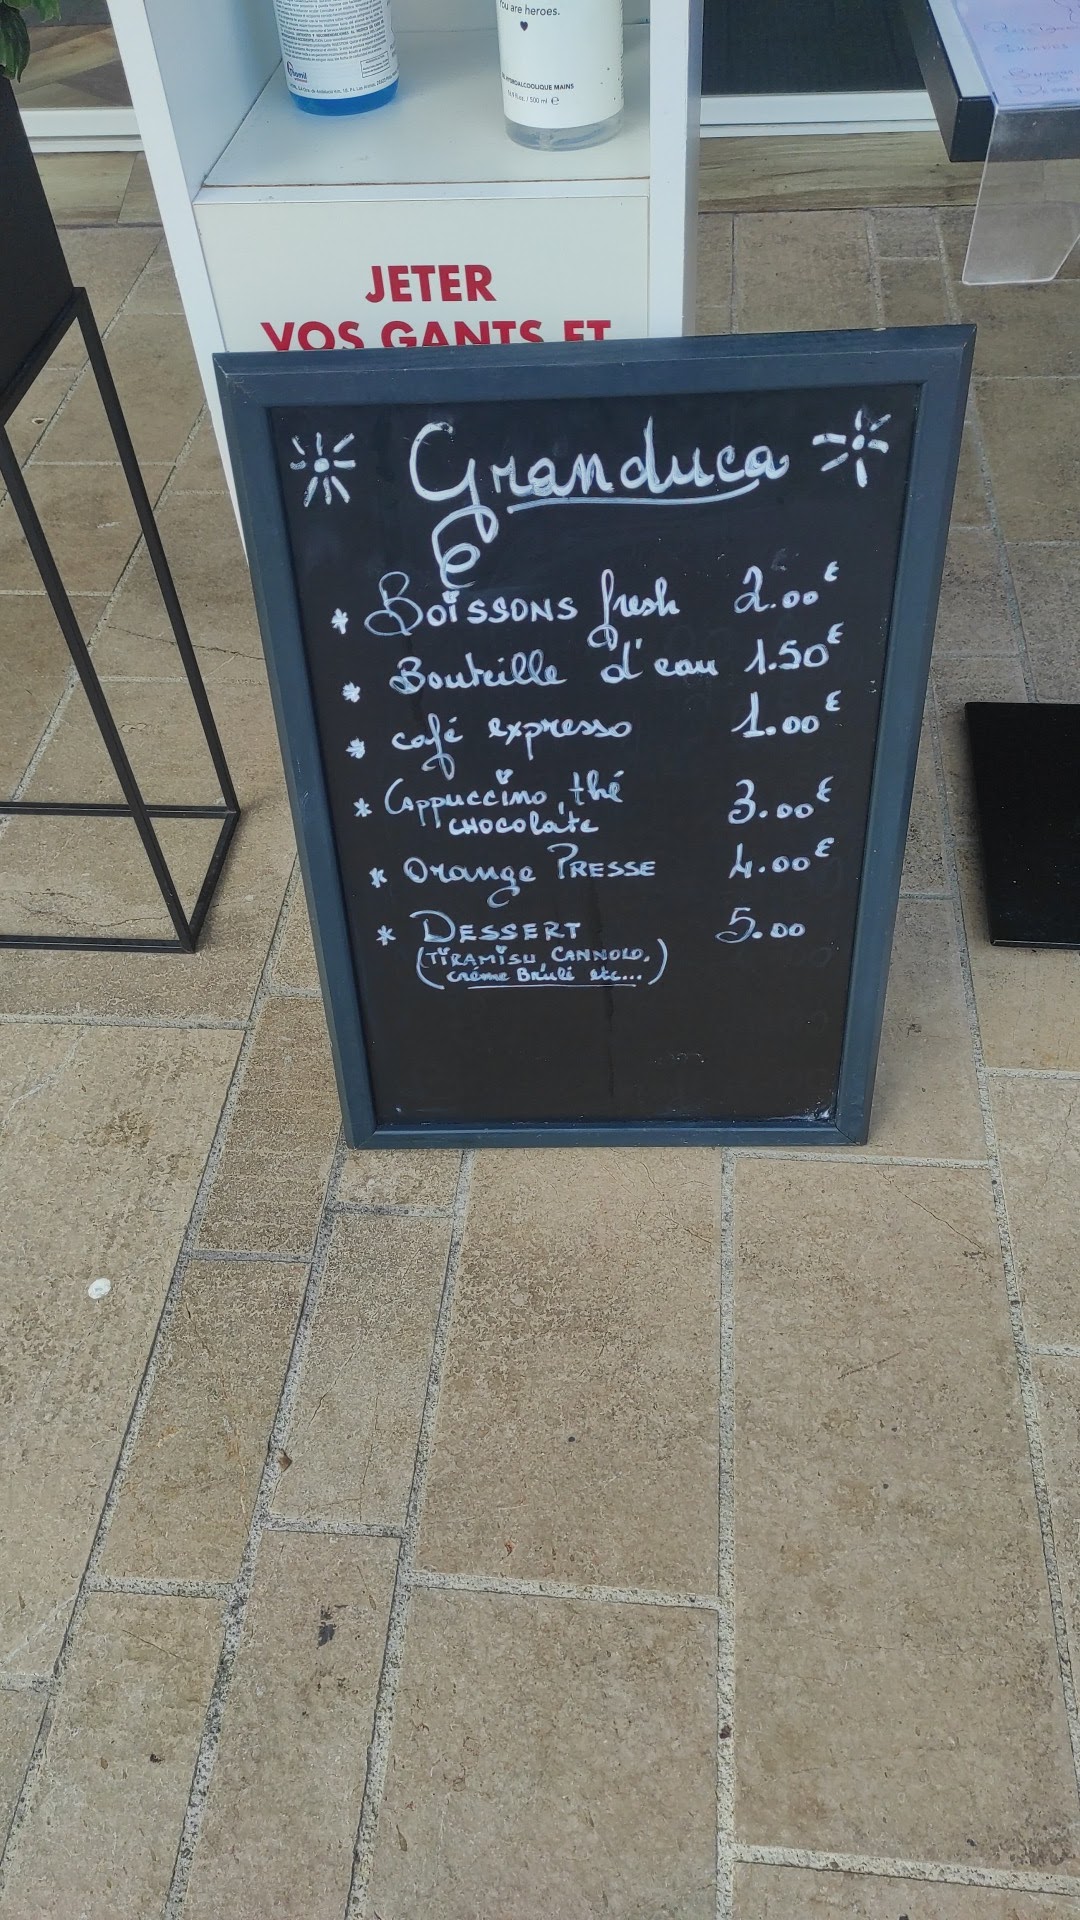 You are heroes.
HYDROALCOOLIQUE MAINS
500 ml e
JETER
VOS GANTS ET
Granduca
* Boissons fresh 2.00€
* Bouteille d'eau 1.50€
* café expresso 1.00€
* Cappuccino, thé 3.00€
chocolate
* Orange PRESSE 4.00€
* DESSERT 5.00
(TiRAMiSU, CANNOLO,
créme Brulé etc...)